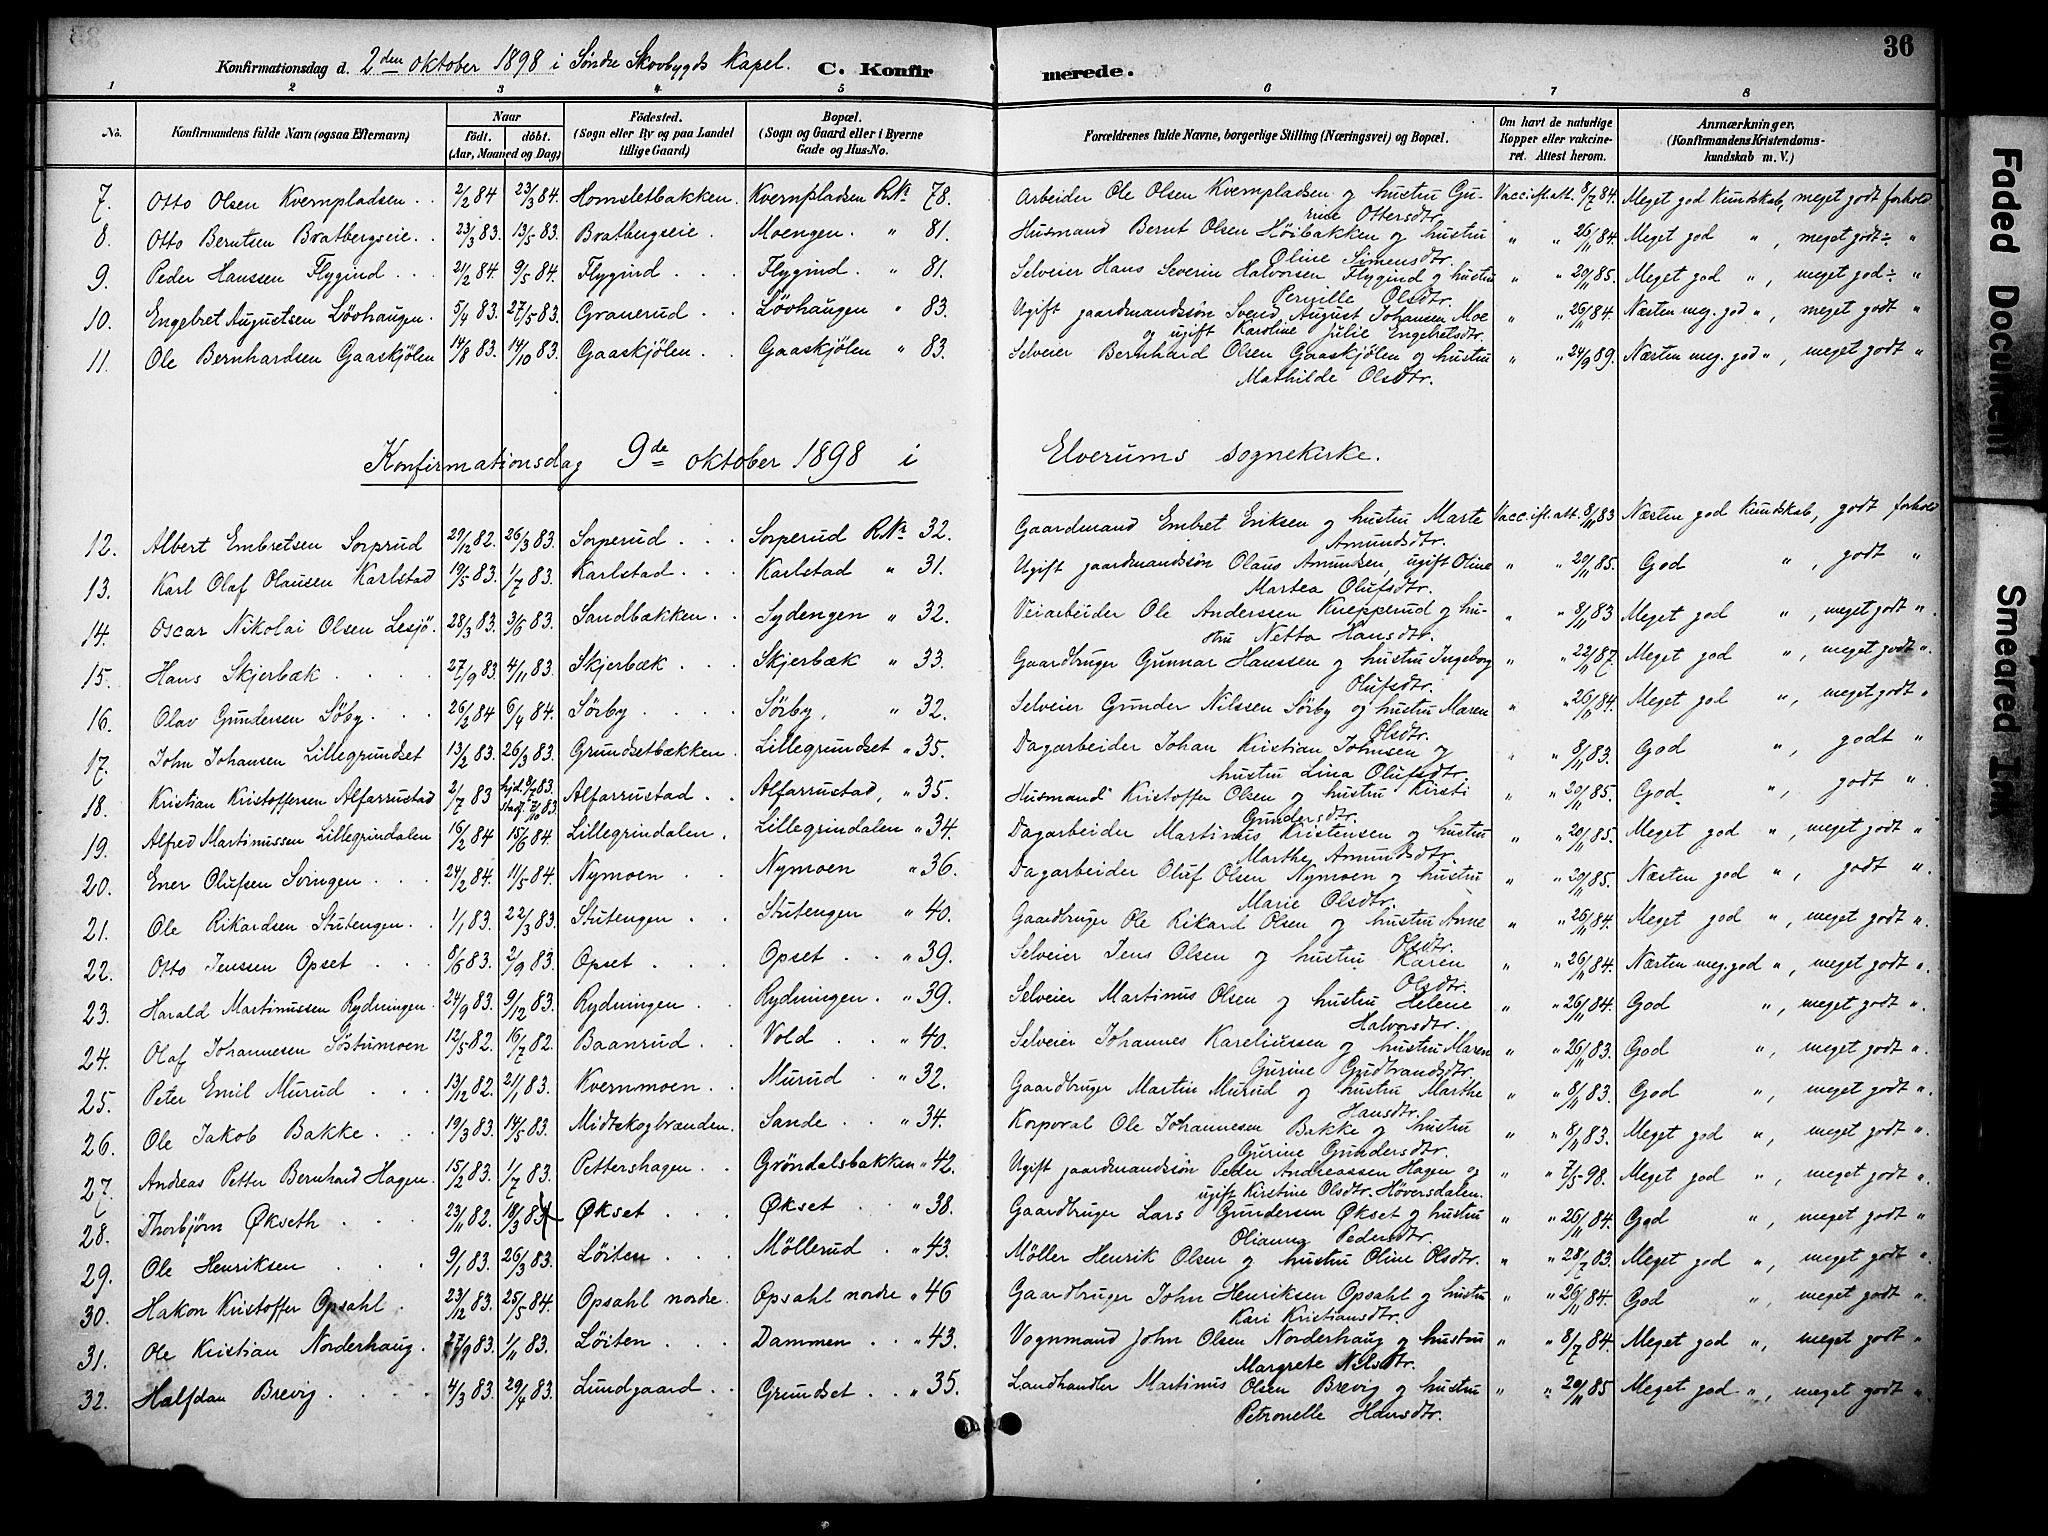 36
Konfirmationsdag d. 2den oktober 1898 i Søndre Skovbygds Kapel. C. Konfirmerede.
1 2 3 4 5 6 7 8
No. Konfirmandens fulde Navn (ogsaa Efternavn) Naar født. døbt. (Aar, Maaned og Dag) Fødested. (Sogn eller By og paa Landet tillige Gaard) Bopæl. (Sogn og Gaard eller i Byerne Gade og Hus-No. Forældrenes fulde Navne, borgerlige Stilling (Næringsvei) og Bopæl. Om havt de naturlige Kopper eller vakcineret. Attest herom. Anmærkninger. (Konfirmandens Kristendomskundskab m. V.)
7. Otto Olsen Kvernpladsen . . 2/2 84 23/3 84. Homsletbakken. Kvernpladsen RN: 78. Arbeider Ole Olsen Kvernpladsen og hustru Gurine Ottersdtr. Vacc. ifl. att. 8/7 84. Meget god Kundskab, meget godt forhold
8. Otto Berntsen Bratbergseie. . 23/3 83. 13/5 83. Bratbergseie. Moengen. " 81. Husmand Bernt Olsen Høibakken og hustru Oline Simensdtr. " " 26/11 84. Meget god " , meget godt "
9. Peder Hanssen Flygind . . . 21/2 84 9/5 84. Flygind . . . Flygind. " 81. Selveier Hans Severin Halvorsen Flygind og hustru Pernille Olsdtr. " " 20/11 85. Meget god " , meget god "
10. Engebret Augustsen Løvhaugen. 5/4 83. 27/5 83. Granerud . . Løvhaugen " 83. Ugift gaardmandsøn Svend August Johansen Moe og ugift Karoline Julie Engebretsdtr. " " 26/11 84. Næsten meg. god " , meget godt "
11. Ole Bernhardsen Gaaskjølen 14/8 83. 14/10 83. Gaaskjølen . . Gaaskjølen " 83. Selveier Bernhard Olsen Gaaskjølen og hustru Mathilde Olsdtr. " " 24/9 89. Næsten meg. god " , meget godt "
Konfirmationsdag 9de oktober 1898 i Elverums sognekirke.
12. Albert Embretsen Sorprud 29/12 82. 26/3 83. Sorperud . . . Sorperud RN: 32. Gaardmand Embret Eriksen og hustru Marte Amundsdtr. Vacc. ifl. att. 8/11 83 Næsten god Kundskab, godt forhold
13. Karl Olaf Olausen Karlstad 19/5 83. 1/7 83. Karlstad . . . Karlstad " 31. Ugift gaardmandsøn Olaus Amundsen, ugift Oline Martea Olufsdtr. " " 20/11 85. God " , godt "
14. Oscar Nikolai Olsen Lesjø. 28/3 83. 3/6 83. Sandbakken . . Sydengen " 32. Veiarbeider Ole Anderssen Knepperud og hustru Netta Hansdtr. " " 8/11 83 Meget god " , meget godt "
15. Hans Skjerbæk . . . . 27/9 83 4/11 83. Skjerbæk . . . Skjerbæk " 33. Gaardbruger Gunnar Hanssen og hustru Ingeborg Olufsdtr. " " 22/11 87. Meget god " , meget godt "
16. Olav Gundersen Söby. . . 26/2 84 6/4 84. Sörby . . . . Sörby. " 32. Selveier Gunder Nilssen Sörby og hustru Maren Olsdtr. " " 26/11 84. Meget god " , meget godt "
17. John Johansen Lillegrundset 13/2 83. 26/3 83. Grundsetbækken. Lillegrundset " 35. Dagarbeider Johan Kristian Johnsen og hustru Lina Olufsdtr. " " 8/11 83. God " , godt "
18. Kristian Kristoffersen Alfarrustad 2/7 83 hjd. 8/7 83. stadf. 7/10 83 Alfarrustad . . Alfarrustad, " 35. Husmand Kristoffer Olsen og hustru Kirsti Gundersdtr. " " 20/11 85. God " , godt "
19. Alfred Martinussen Lillegrindalen 16/2 84 15/6 84. Lillegrindalen . Lillegrindalen " 34. Dagarbeider Martinus Kristensen og hustru Marthe Amundsdtr. " " 20/11 85. Meget god " , meget godt "
20. Ener Olufsen Svingen . . . 24/2 84. 11/5 84. Nymoen . . Nymoen " 36. Dagarbeider Oluf Olsen Nymoen og hustru Marie Olsdtr. " " 20/11 85. Næsten god " , godt "
21. Ole Rikardsen Stutengen . . 1/1 83. 22/3 83. Stutengen . . Stutengen " 40. Gaardbruger Ole Rikard Olsen og hustru Anne Olsdtr. " " 26/11 84. Meget god " , meget godt "
22. Otto Jenssen Opset . . . 8/6 83. 2/9 83. Opset . . . Opset . " 39. Selveier Jens Olsen og hustru Karen Olsdtr. " " 26/11 84. Næsten meg. god " , meget godt "
23. Harald Martinussen Rydningen . 24/9 83. 9/12 83. Rydningen . . Rydningen . " 39. Selveier Martinus Olsen og hustru Helene Halvorsdtr. " " 26/11 84. God " , meget godt "
24. Olaf Johannesen Söstumoen 12/5 82. 16/7 82. Baanrud . . Vold . . " 40. Selveier Johannes Kareliussen og hustru Maren Gurine Gudbrandsdtr. " " 26/11 83. God " , meget godt "
25. Peter Emil Murud . . . 13/12 82. 21/1 83. Kvernmoen . . Murud . " 32. Gaardbruger Martin Murud og hustru Marthe Hansdtr. " " 8/11 83. God " , meget godt "
26. Ole Jakob Bakke . . . 19/3 83. 14/5 83. Midtskogbranden. Sande . . " 34. Korporal Ole Johannesen Bakke og hustru Gurine Gundersdtr. " " 8/11 83. Meget god " , meget godt "
27. Andreas Petter Bernhard Hagen. 15/2 83. 1/7 83. Pettershagen . . Gröndalsbakken " 42. Ugift gaardmandsøn Peder Andreassen Hagen og ugift Kirstine Olsdtr. Höversdalen. " " 7/5 98. Meget god " , meget godt "
28. Thorbjørn Økseth . . . . 23/11 82. 18/3 83 Økset . . . Økset . . " 38. Gaardbruger Lars Gundersen Økset og hustru Olianna Pedersdtr. " " 26/11 84. God " , meget godt "
29. Ole Henriksen . . . . 9/1 83. 26/3 83. Løiten . . . Möllerud . " 43. Möller Henrik Olsen og hustru Oline Olsdtr. " " 28/7 83. Meget god " , meget godt "
30. Hakon Kristoffer Opsahl . 23/12 83. 25/5 84. Opsahl nordre. Opsahl nordre " 46 Gaardbruger John Henriksen Opsahl og hustru Kari Kristiansdtr. " " 26/11 84. God " , meget godt "
31. Ole Kristian Norderhaug . 27/9 83. 1/11 83. Løiten . . . Dammen . . " 43. Vognmand John Olsen Norderhaug og hustru Margrete Nilsdtr. " " 8/7 84. Meget god " , meget godt "
32. Halfdan Brevig . . . . 4/3 83. 29/4 83. Lundgaard . . Grundset . . " 35. Landhandler Martinus Olsen Brevig og hustru Petronelle Hansdtr. " " 20/11 85 Meget god " , meget godt "
Faded Document
Smeared Ink